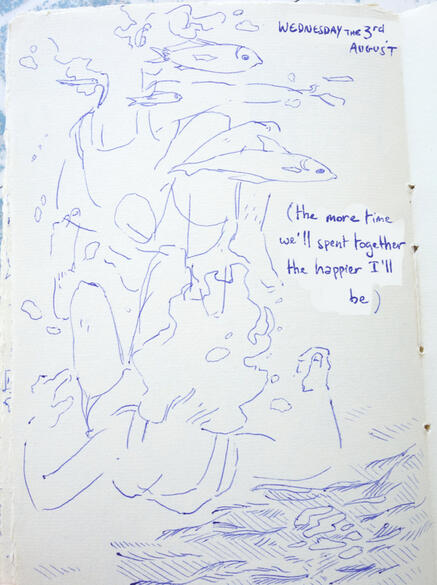 WEDNESDAY THE 3rd
AUGUST
(the more time
we'll spent together
the happier I'll
be)